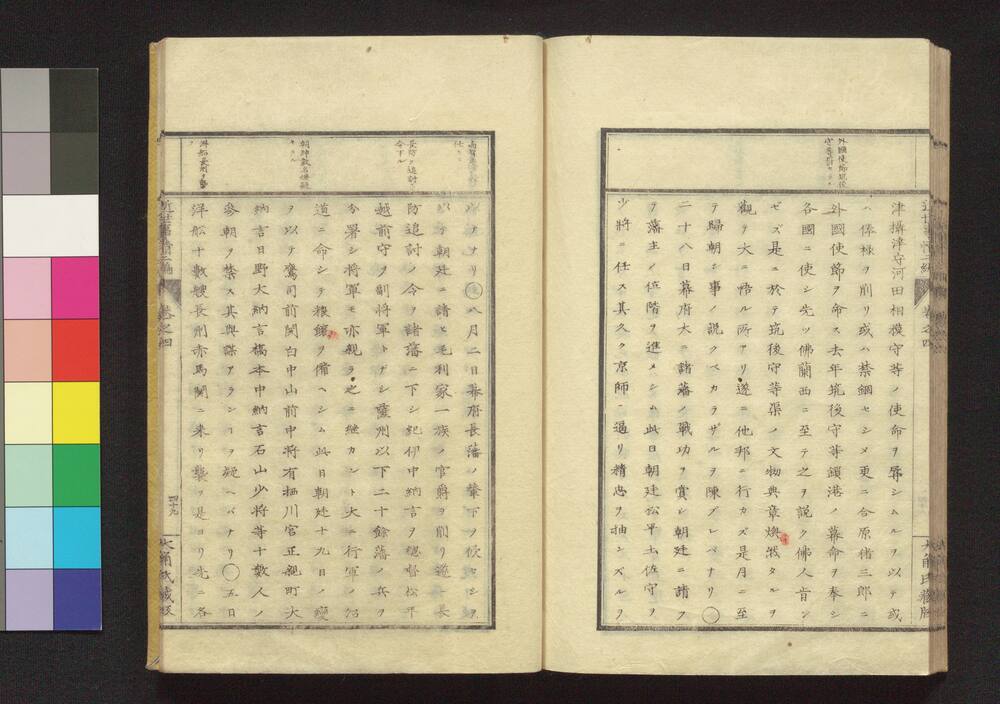 外國使節現後
津攝津守河田相模守等ノ使命ヲ辱シムルヲ以テ或
ハ俸禄ヲ削リ或ハ禁錮セシメ更ニ合原猪三郎ニ
外國使節ヲ命ス去年筑後守等鎖港ノ幕命ヲ奉シ
各國ニ使シ先ツ佛蘭西ニ至テ之ヲ説ク佛人肯ン
ゼズ是ニ於テ筑後守等渠ノ文物典章煥然タルヲ
觀テ大ニ悟ル所アリ遂ニ他邦ニ行カズ是月ニ至
テ歸朝シ事ノ説クベカラザルヲ陳ズレバナリ〇
二十八日幕府大ニ諸藩ノ戰功ヲ賞シ朝廷ニ請フ
ヲ藩主ノ位階ヲ進メシム此日朝廷松平土佐守ヲ
少將ニ任ス其久ク京師ニ過リ精忠ヲ抽ンズルヲ
近世事情二編 卷之四
大角氏藏版
長防ヲ追討ノ
令下ル
朝紳數名併蟄
セラル
洋船長州ヲ襲
フ
以テナリ〇八月二日幕府長藩ノ輦下ヲ侵セシヲ
以テ朝廷ニ請ヒ毛利家一族ノ官爵ヲ削リ遂ニ長
防追討ノ令ヲ諸藩ニ下シ紀伊中納言ヲ總督松平
越前守ヲ副將軍トナシ薩州以下二十餘藩ノ兵ヲ
分署シ將軍モ亦親ラ之ニ継カント大ニ行軍ノ沿
道ニ命シテ糗餉ヲ備ヘシム此日朝廷十九日ノ變
ヲ以テ鷹司前関白中山前中將有栖川宮正親町大
納言日野大納言橋本中納言石山少將等十數人ノ
參朝ヲ禁ス其與謀アランコヲ疑ヘバナリ〇五日
洋船十數艘長州赤馬関ニ来リ襲フ是ヨリ先ニ各
近世事情二編 卷之四
四十九
大角氏藏版